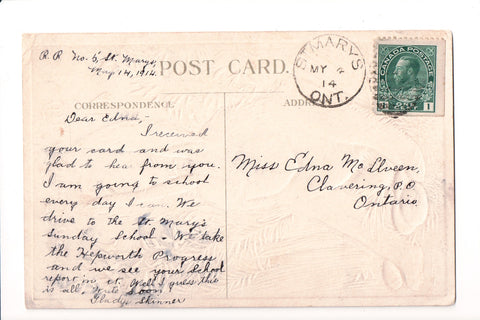 R.R. No. 5, St. Marys,
May 14, 1914.
POST CARD.
CORRESPONDENCE
ADDRE
ST MARYS
MY
14
ONT.
CANADA POSTAGE
1
Dear Edna,-
I received
your card and was
glad to hea from you.
I am going to school
every day I can. We
drive to the St. Mary's
Sunday School. We take
the Hepworth Progress
and we see your School
report in it. Well I guess this
is all. Write soon
Gladys Skinner
Miss Edna McIlveen,
Clavering, P.O
Ontario